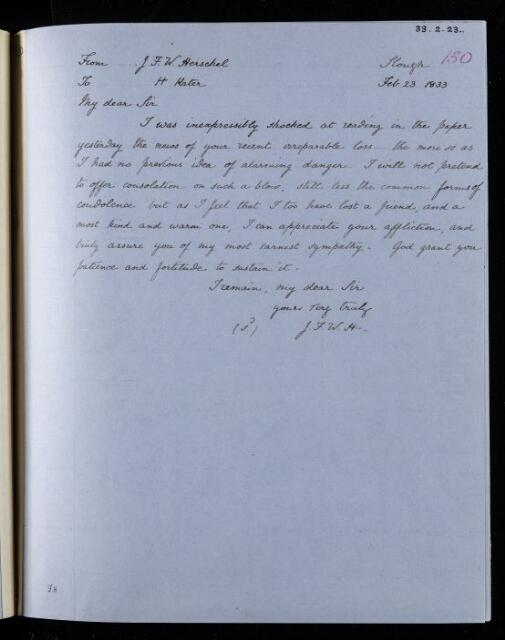 33.2.23.
From J. F. W. Herschel Slough 150
To H Kater Feb 23 1833
My dear Sir
I was inexpressibly shocked at reading in the paper
yesterday the news of your recent irreparable loss - the more so as
I had no previous idea of alarming danger. I will not pretend
to offer consolation on such a blow, still less the common forms of
condolence but as I feel that I too have lost a friend, and a
most kind and warm one, I can appreciate your affliction, and
truly assure you of my most earnest sympathy - God grant you
patience and fortitude to sustain it.
I remain, my dear Sir
yours very truly
J. F. W. H.